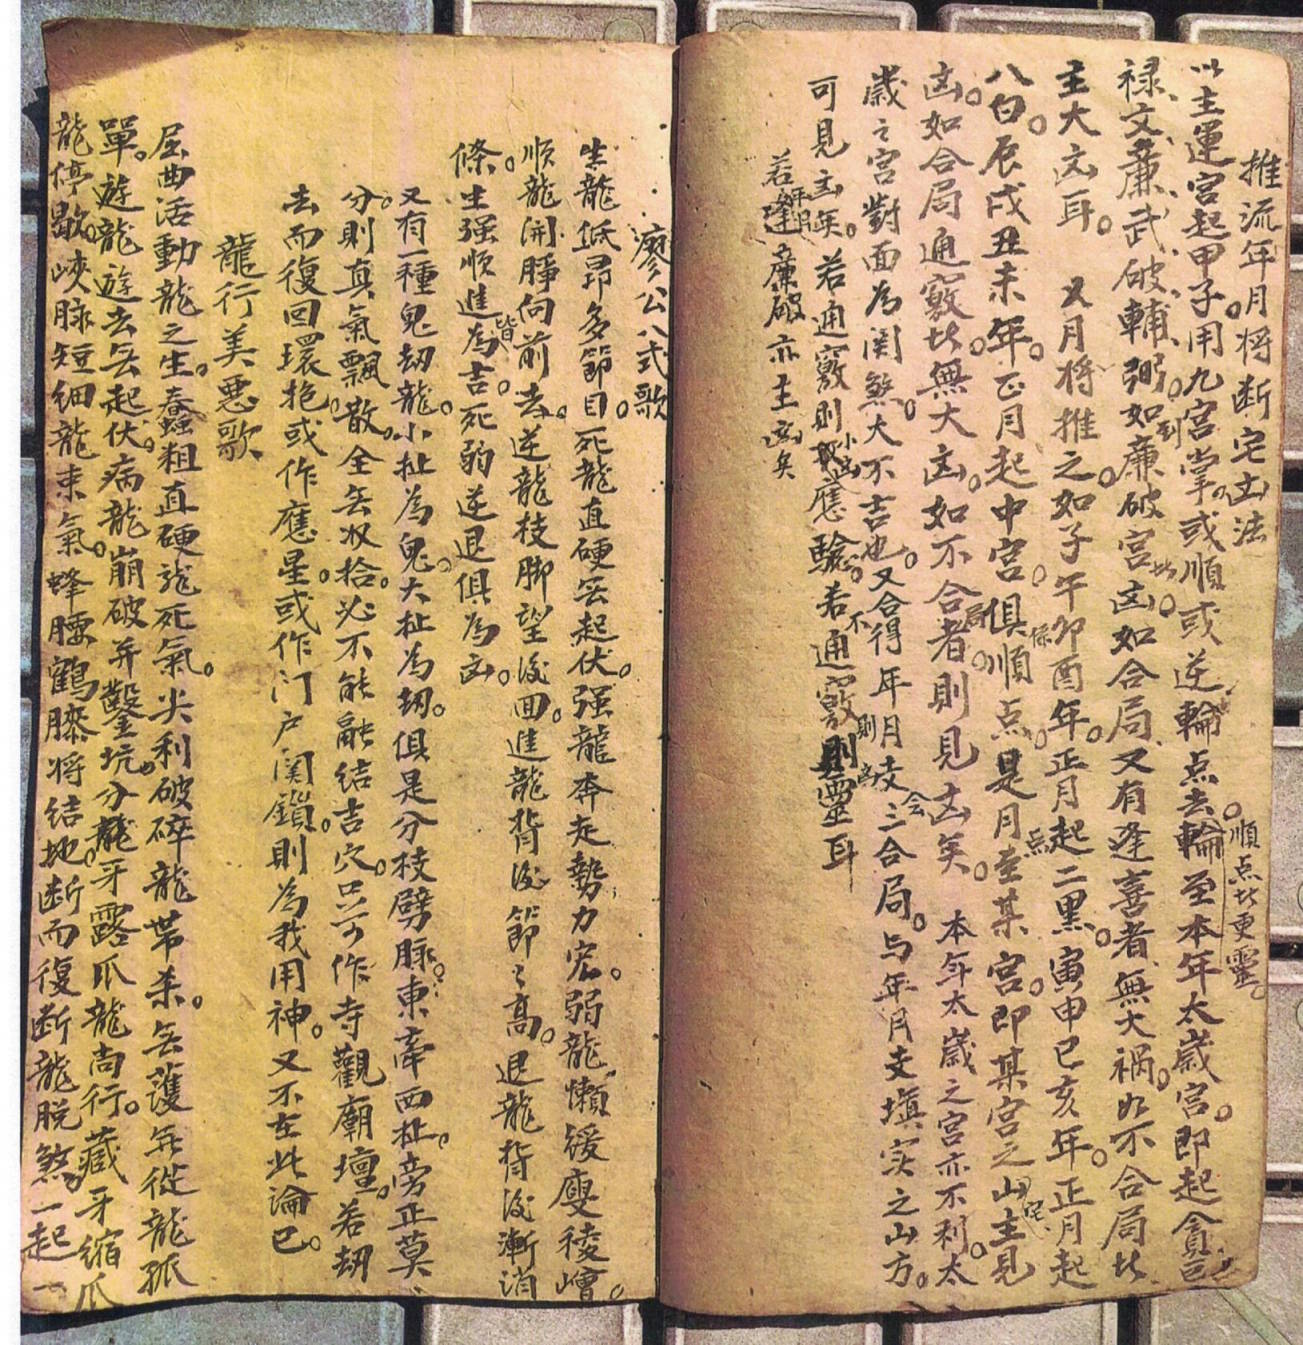 推流年月将断宅出法
以主運宮起甲子。用九宮掌。或順或逆輪点去。輪至本年太歲宮。即起貪巨
順点此更靈。
禄、文、廉、武、破、輔、弼。如廉破到宮凶。如合局又有逢喜者無大禍。如不合局此
主大凶耳。又月将推之。如子午卯酉年。正月起二黑。寅申巳亥年。正月起
八白。辰戌丑未年。正月起中宮。俱順点。是月点至某宮。即某宮之山主見
凶。如合局通竅此。無大凶。如不合局者則見凶矣。本年太歲之宮亦不利。太
歲之宮對面為関煞。大不吉也。又合得年月支会三合局。与年月支填实之山方。
可見主年。若通竅則小凶應驗。若不通竅則靈耳
若逢廉破亦主凶矣
廖公八式歌
生龍低昂多節目。死龍直硬無起伏。强龍奔走勢力宏。弱龍懶緩廋稜嶒。
順龍開睜向前去。逆龍枝脚望後回。進龍背後節々高。退龍背後漸消
條。生强順進皆為吉。死弱逆退俱為凶。
又有一種鬼劫龍。小扯為鬼。大扯為劫。俱是分枝劈脉。東牽西扯。旁正莫
分。則真氣飄散。全無收拾。必不能融結吉穴。只可作寺觀廟壇。若劫
去而復回環抱。或作應星。或作门户関鎖。則為我用神。又不在此論已。
龍行美悪歌
屈曲活動龍之生。蠢粗直硬龍死氣。尖利破碎龍帯杀。無護無從龍孤
單。遊龍遊去無起伏。病龍崩破并鑿坑。分龍牙露爪龍尚行。藏牙缩爪
龍停歇。峡脉短細龍束氣。蜂腰鶴膝将結地。断而復断龍脱煞。一起一